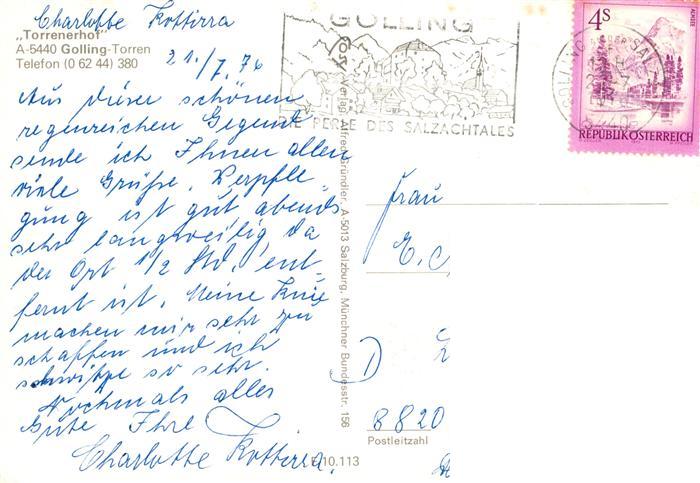 Charlotte Kottirra
„Torrenerhof"
A-5440 Golling-Torren
Telefon (0 62 44) 380
21./7.76
Aus dieser schönen
regenreichen Gegend
sende ich Ihnen allen
viele Grüße. Verpfle-
gung ist gut, abends
sehr langweilig, da
der Ort 1/2 Std. ent-
fernt ist. Meine Knie
machen mir sehr zu
schaffen und ich
schwitze so sehr.
Nochmals alles
Gute Ihre
Charlotte Kottirra.
GOLLING
DIE PERLE DES SALZACHTALES
4s
ALMSEE
REPUBLIK ÖSTERREICH
Verlag Alfred Gründler, A-5013 Salzburg, Münchner Bundesstr. 156
Frau
E. C
D
8820
Postleitzahl
E 10.113